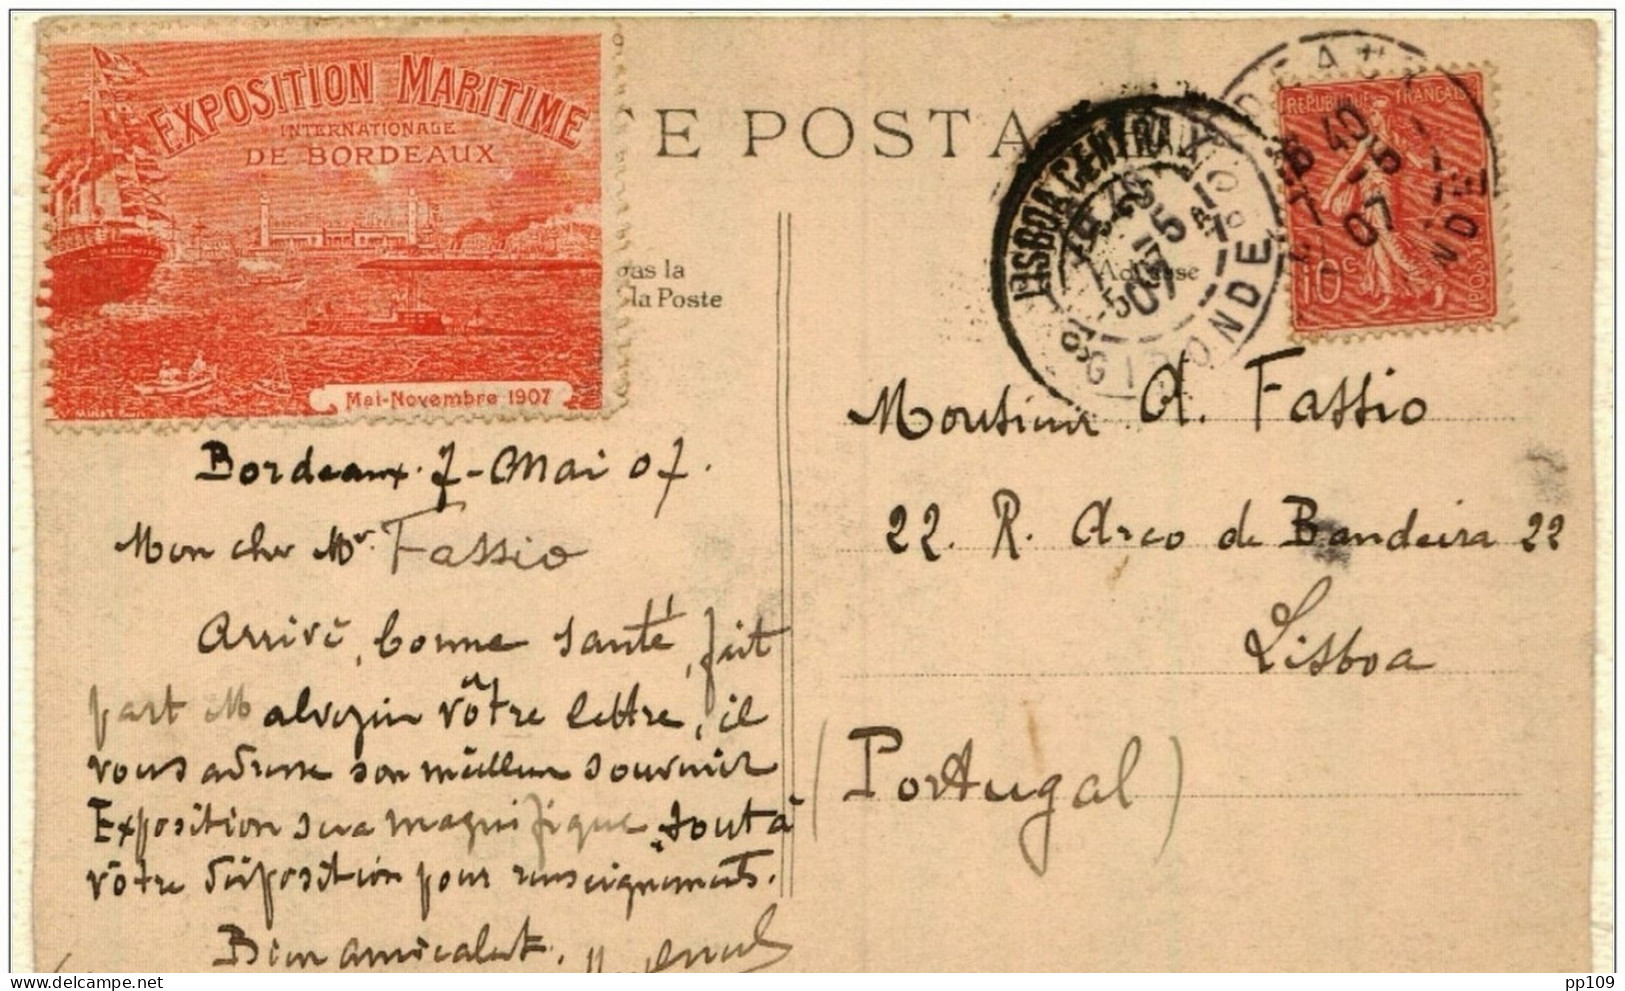 EXPOSITION MARITIME
INTERNATIONALE
DE BORDEAUX
Mai-Novembre 1907
TE POSTA
pas la
la Poste
LISBOA CENTRAL
GIRONDE
REPUBLIQUE FRANCAISE
10c
POSTES
6 40
7 -5
07
Adresse
Bordeaux. 7-Mai 07.
Mon cher Mr. Fassio
Arrivé, bonne santé, fait
part Malvezin vôtre lettre, il
vous adresse son meilleur souvenir
Exposition sera magnifique, tout à
vôtre disposition pour renseignements.
Bien amicalmt.
Monsieur A. Fassio
22. R. Arco do Bandeira 22
Lisboa
(Portugal)
pp109